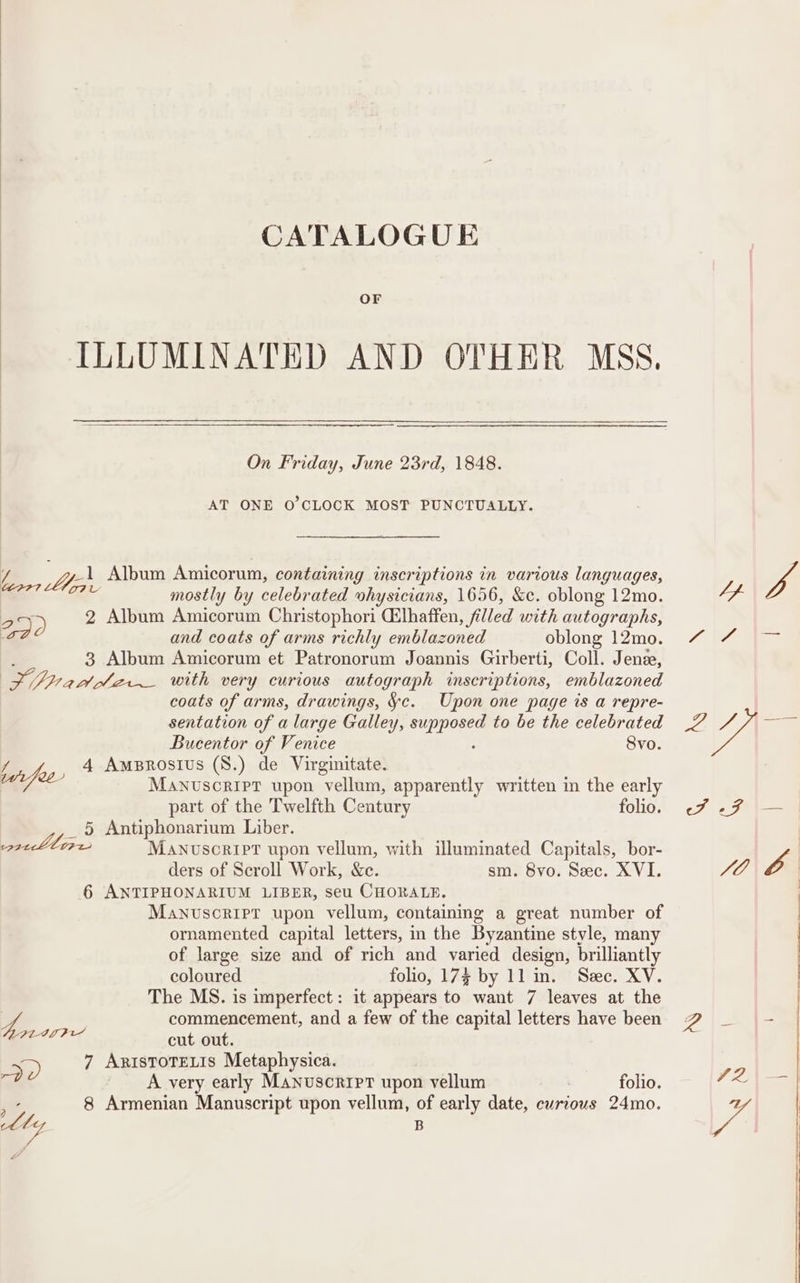 CATALOGUE
OF
ILLUMINATED AND OTHER MSS.
On Friday, June 23rd, 1848.
AT ONE O'CLOCK MOST PUNCTUALLY.
1 Album Amicorum, containing inscriptions in various languages,
mostly by celebrated physicians, 1656, &c. oblong 12mo.
2 Album Amicorum Christophori Œlhaffen, filled with autographs,
and coats of arms richly emblazoned oblong 12mo.
3 Album Amicorum et Patronorum Joannis Girberti, Coll. Jenæ,
with very curious autograph inscriptions, emblazoned
coats of arms, drawings, &c. Upon one page is a repre-
sentation of a large Galley, supposed to be the celebrated
Bucentor of Venice 8vo.
4 AMBROSIUS (S.) de Virginitate.
MANUSCRIPT upon vellum, apparently written in the early
part of the Twelfth Century folio.
5 Antiphonarium Liber.
MANUSCRIPT upon vellum, with illuminated Capitals, bor-
ders of Scroll Work, &c. sm. 8vo. Sæc. XVI.
6 ANTIPHONARIUM LIBER, seu CHORALE.
MANUSCRIPT upon vellum, containing a great number of
ornamented capital letters, in the Byzantine style, many
of large size and of rich and varied design, brilliantly
coloured folio, 17¾ by 11 in. Sæc. XV.
The MS. is imperfect: it appears to want 7 leaves at the
commencement, and a few of the capital letters have been
cut out.
7 ARISTOTELIS Metaphysica.
A very early MANUSCRIPT upon vellum folio.
8 Armenian Manuscript upon vellum, of early date, curious 24mo.
B